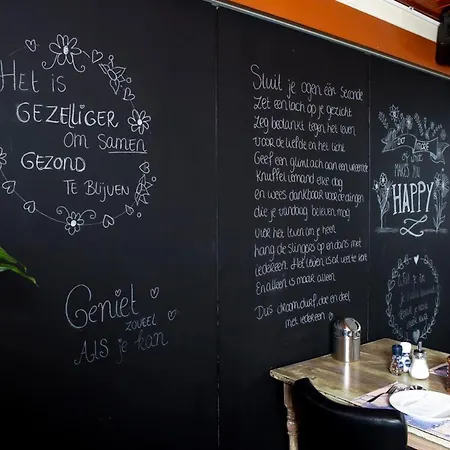 Het is
GEZELLIGER
om SAMEN
GEZOND
TE BLIJVEN
Geniet
ZOVEEL
ALS je kan
Sluit je ogen één seconde
Zet een lach op je gezicht
Zeg bedankt tegen het leven
voor de liefde en het licht
Geef een glimlach aan een vreemde
Knuffel iemand elke dag
en wees dankbaar voor de dingen
die je vandaag beleven mag
Vier het leven om je heen
hang de slingers op en dans met
iedereen. Het leven is al veel te kort
En alleen is maar alleen
Dus droom, durf, doe en deel
met iedereen
DO MORE
OF WHAT
MAKES YOU
HAPPY